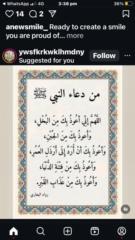 WhatsApp
3:38 pm
36
14
2
anewsmile_ Ready to create a smile
you are proud of... more
ywsfkrkwklhmdny
Follow
Suggested for you
من دعاء النبي ﷺ
اللَّهُمَّ إِنِّي أَعُوذُ بِكَ مِنَ الْبُخْلِ،
وَأَعُوذُ بِكَ مِنَ الْجُبْنِ،
وَأَعُوذُ بِكَ أَنْ أُرَدَّ إِلَى أَرْذَلِ الْعُمُرِ،
وَأَعُوذُ بِكَ مِنْ فِتْنَةِ الدُّنْيَا،
وَأَعُوذُ بِكَ مِنْ عَذَابِ الْقَبْرِ.
رواه البخاري